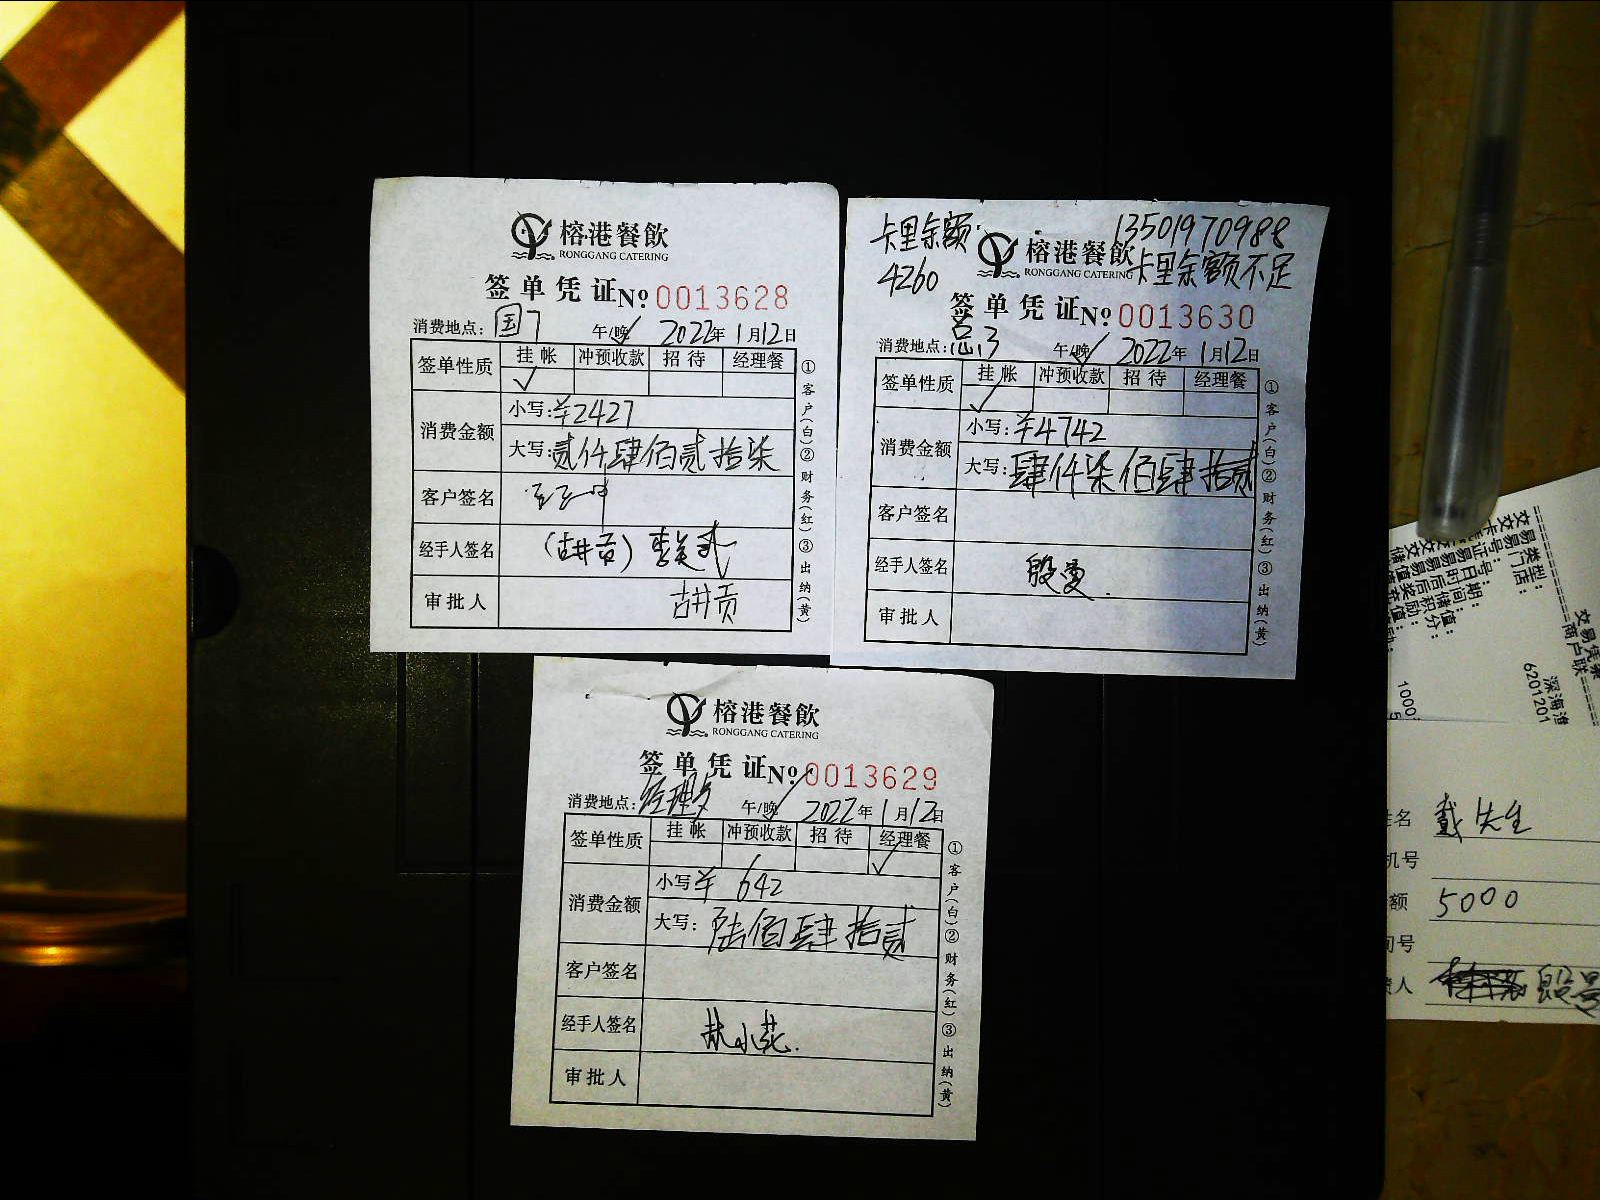 榕港餐飲
RONGGANG CATERING
签单凭证 Nº 0013628
消费地点: 国7 午/晚 2022年1月12日
签单性质 挂帐 冲预收款 招待 经理餐
✓
消费金额 小写: ¥2427
大写: 贰仟肆佰贰拾柒
客户签名
经手人签名 (古井贡)
审批人 古井贡
①客户(白)②财务(红)③出纳(黄)
卡里余额 13501970988
4260 卡里余额不足
榕港餐飲
RONGGANG CATERING
签单凭证 Nº 0013630
消费地点: 午/晚 2022年1月12日
签单性质 挂帐 冲预收款 招待 经理餐
✓
消费金额 小写: ¥4742
大写: 肆仟柒佰肆拾贰
客户签名
经手人签名
审批人
①客户(白)②财务(红)③出纳(黄)
榕港餐飲
RONGGANG CATERING
签单凭证 Nº 0013629
消费地点: 经理 午/晚 2022年1月12日
签单性质 挂帐 冲预收款 招待 经理餐
✓
消费金额 小写 ¥ 642
大写: 陆佰肆拾贰
客户签名
经手人签名 林小花.
审批人
①客户(白)②财务(红)③出纳(黄)
商户联
6201201
名 戴先生
机号
额 5000
号
人